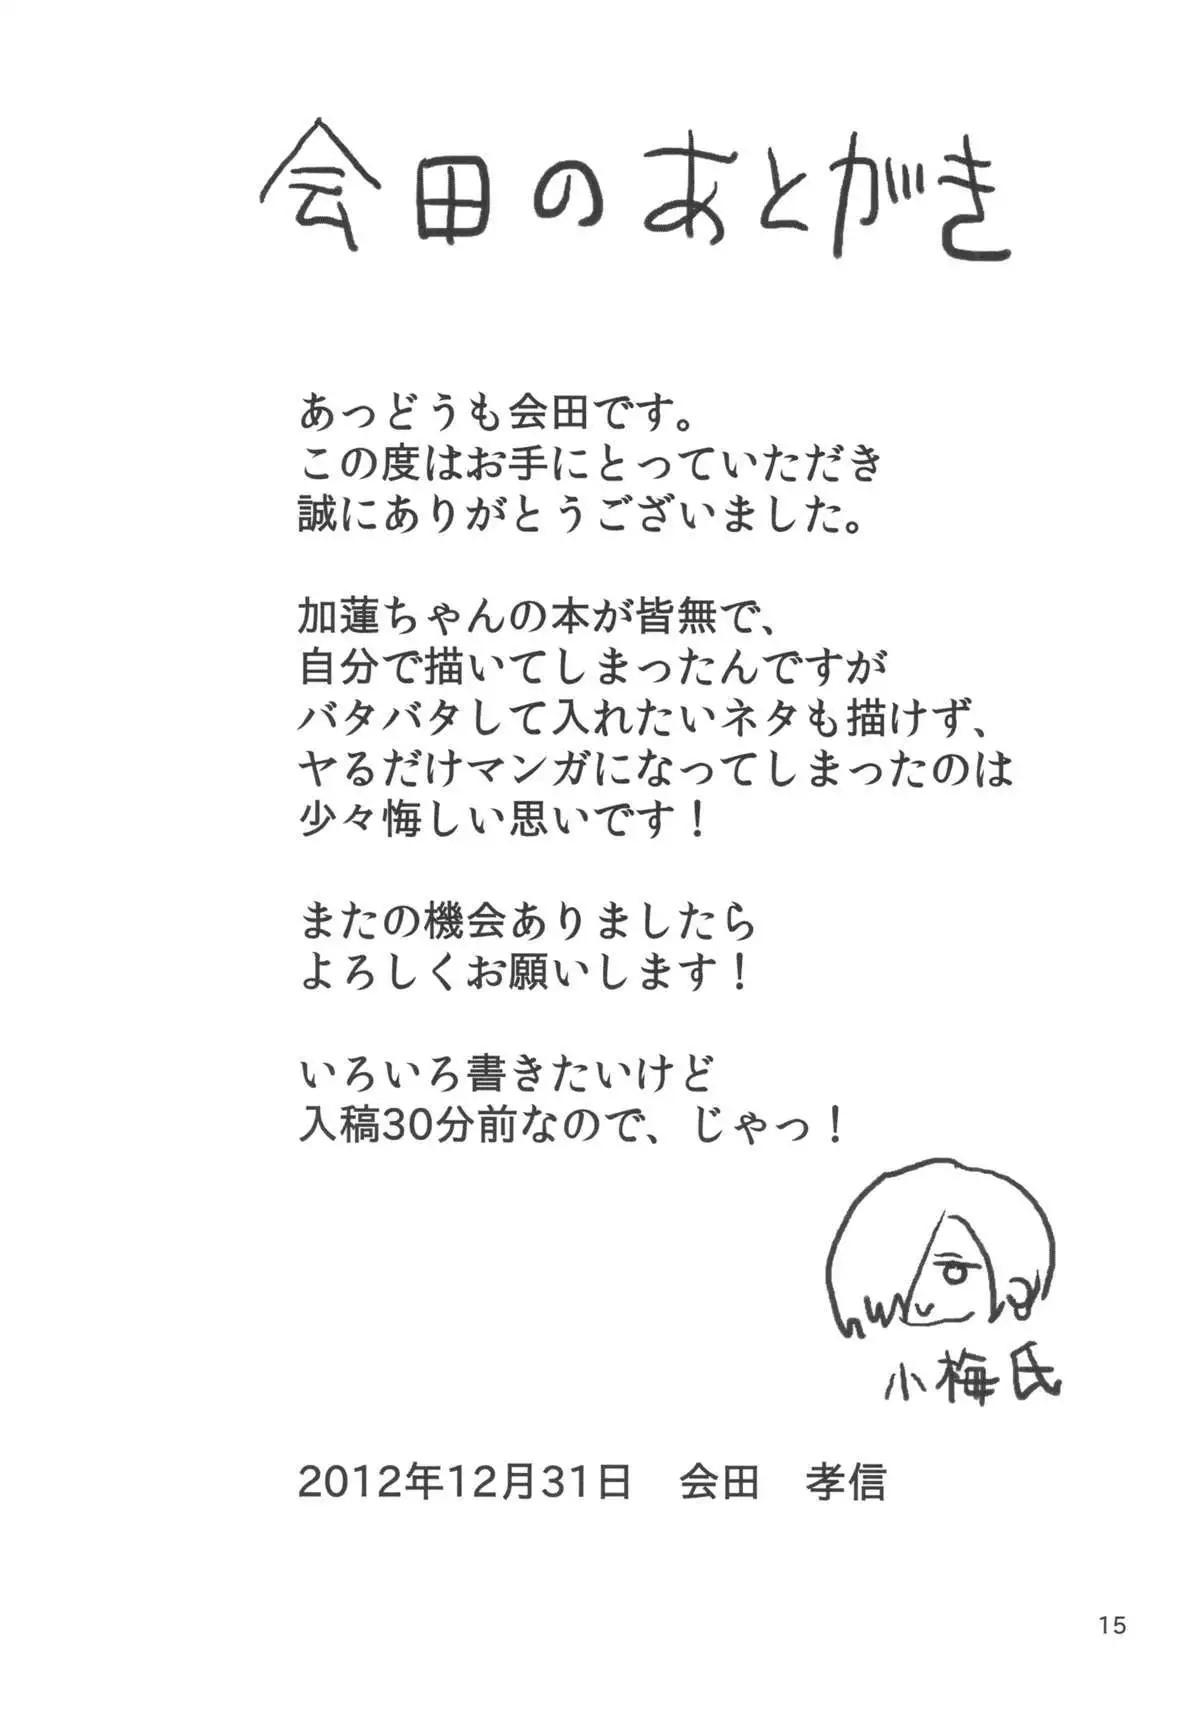 会田のあとがき
あっどうも会田です。
この度はお手にとっていただき
誠にありがとうございました。
加蓮ちゃんの本が皆無で、
自分で描いてしまったんですが
バタバタして入れたいネタも描けず、
ヤるだけマンガになってしまったのは
少々悔しい思いです！
またの機会ありましたら
よろしくお願いします！
いろいろ書きたいけど
入稿30分前なので、じゃっ！
小梅氏
2012年12月31日　会田　孝信
15